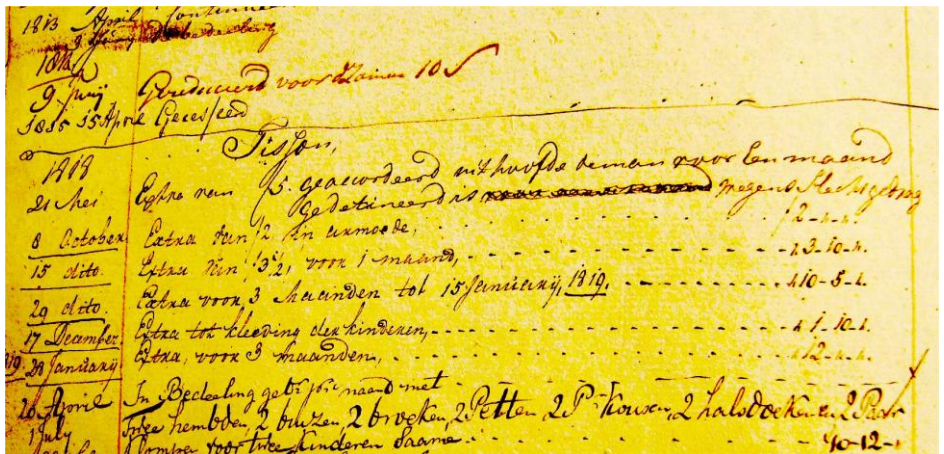 1813 April Continueer
9 Juny de bedeeling
1814
9 Juny Gereduceerd voor 10 S
1815 15 April Gecesseerd
Tisson,
1818
21 Mei Extra van f 5. geaccordeerd uithoofde de man voor een maand
gedetineerd is wegens slecht gedrag
8 October Extra van f 2, in armoede, f 2-"-".
15 dito. Extra van f 3 1/2, voor 1 maand, " 3-10-".
29 dito. Extra voor 3 maanden tot 15 January, 1819. " 10-5-".
17 December Extra tot kleeding der kinderen, " 1-10-".
19. 28 January Extra, voor 3 maanden, " 12-"-".
20 April In Bedeeling maand met
1 July Twee hembden, 2 buizen, 2 broeken, 2 Petten, 2 Pr kousen, 2 halsdoeken en 2 Paar
klompen voor twee kinderen saame 10-12-